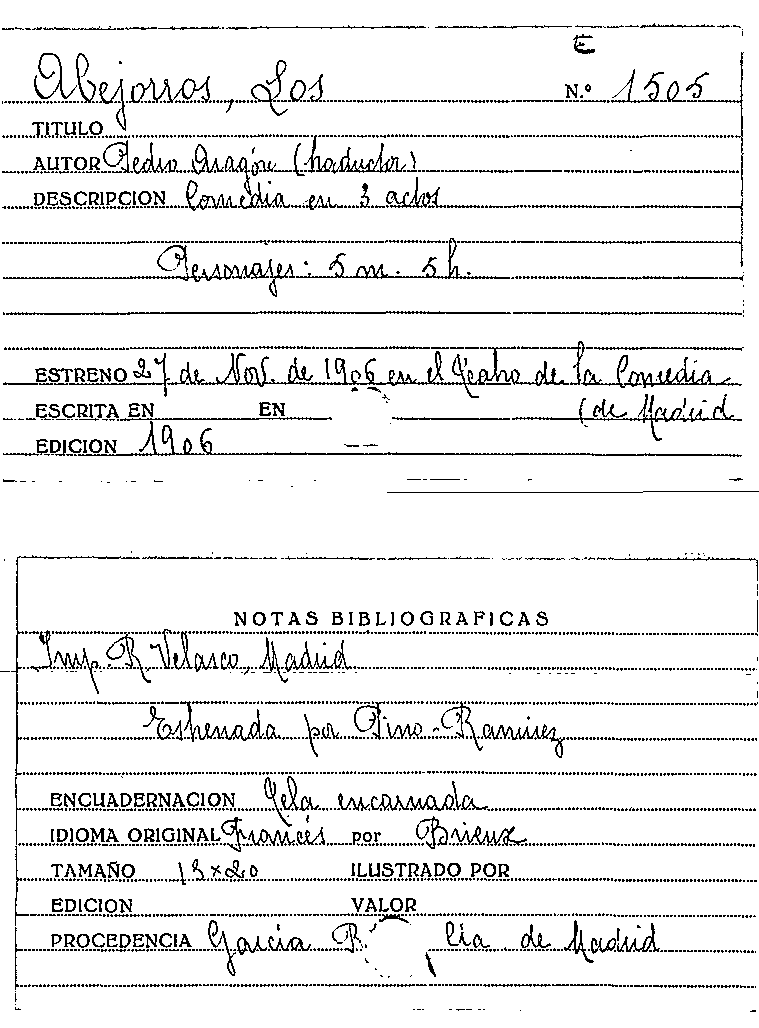 E
Abejorros, Los
N.º 1505
TITULO
AUTOR Pedro Aragón (traductor)
DESCRIPCION Comedia en 3 actos
Personajes: 5 m. 5 h.
ESTRENO 27 de Nov. de 1906 en el Teatro de la Comedia
ESCRITA EN EN (de Madrid
EDICION 1906
NOTAS BIBLIOGRAFICAS
Imp. R. Velasco, Madrid
Estrenada por Pino-Ramírez
ENCUADERNACION Tela encarnada
IDIOMA ORIGINAL Francés por Brieux
TAMAÑO 13x20 ILUSTRADO POR
EDICION VALOR
PROCEDENCIA García R. Cía de Madrid